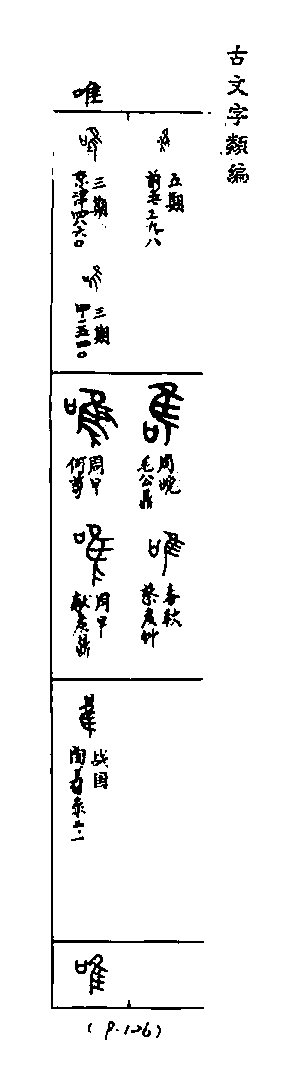 古文字類編
唯
五期
前五·三九·八
三期
京津四八六〇
三期
甲一五四〇
周晚
毛公鼎
周早
何尊
春秋
蔡侯
周早
獻侯鼎
战国
唯
(P.126)